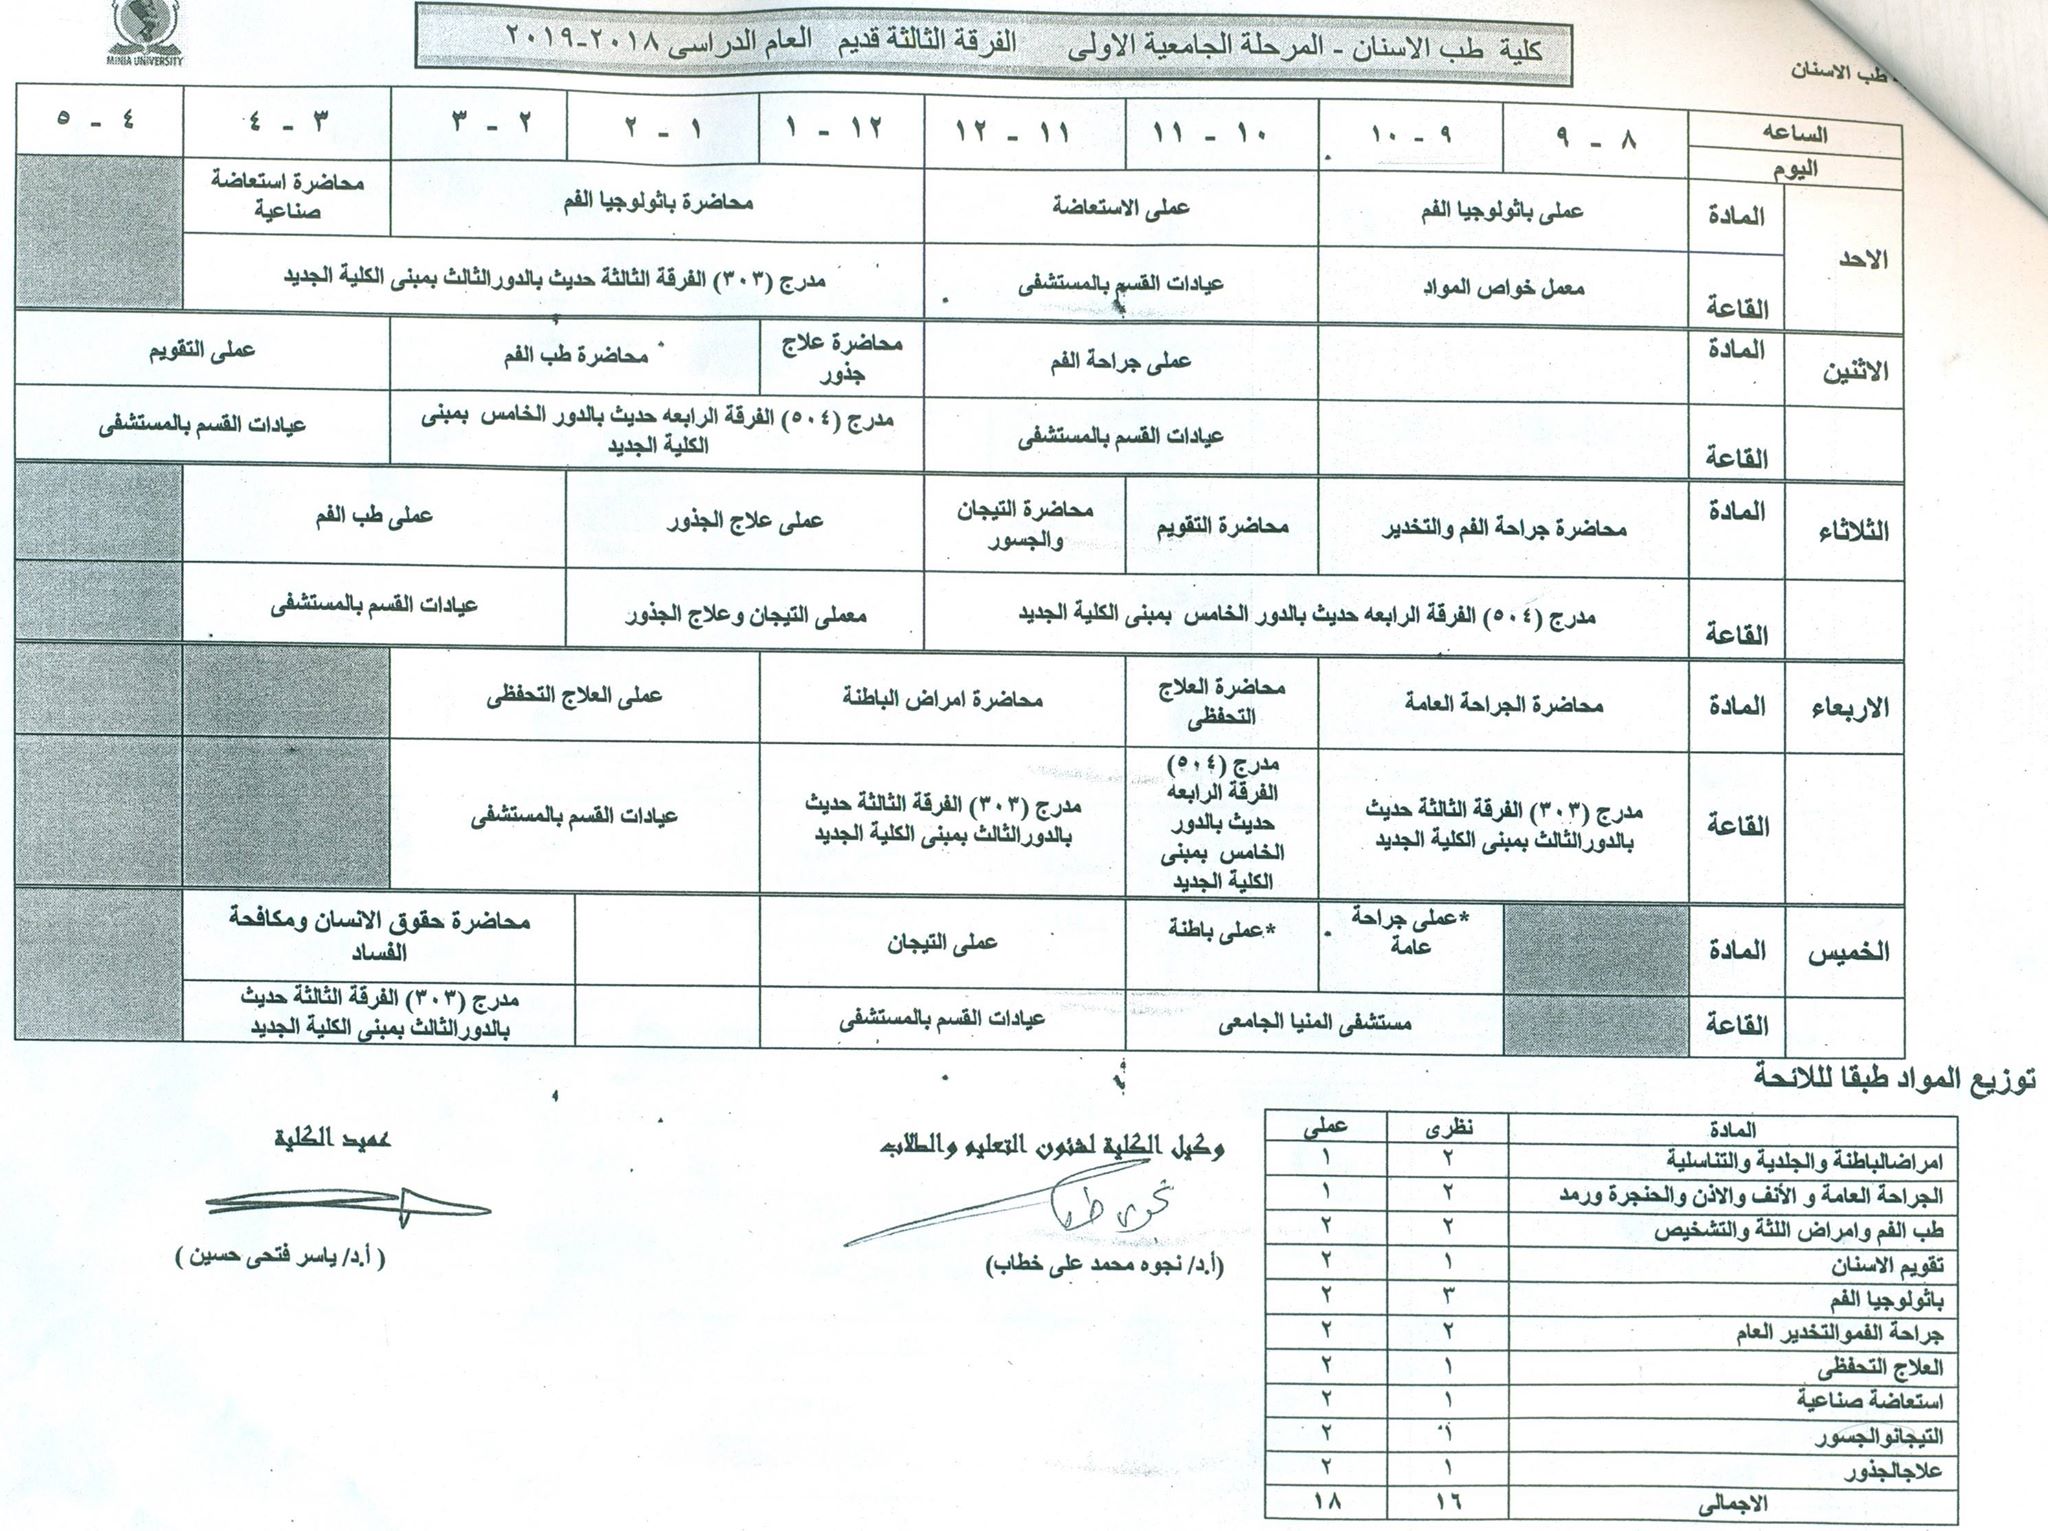 MINIA UNIVERSITY
كلية طب الاسنان - المرحلة الجامعية الاولى الفرقة الثالثة قديم العام الدراسى ٢٠١٨-٢٠١٩
طب الاسنان
الساعه ٨ - ٩ ٩ - ١٠ ١٠ - ١١ ١١ - ١٢ ١٢ - ١ ١ - ٢ ٢ - ٣ ٣ - ٤ ٤ - ٥
اليوم
الاحد المادة عملى باثولوجيا الفم عملى الاستعاضة محاضرة باثولوجيا الفم محاضرة استعاضة
صناعية
القاعة معمل خواص المواد عيادات القسم بالمستشفى مدرج (٣٠٣) الفرقة الثالثة حديث بالدورالثالث بمبنى الكلية الجديد
الاثنين المادة عملى جراحة الفم محاضرة علاج
جذور
محاضرة طب الفم عملى التقويم
القاعة عيادات القسم بالمستشفى مدرج (٥٠٤) الفرقة الرابعه حديث بالدور الخامس بمبنى
الكلية الجديد
عيادات القسم بالمستشفى
الثلاثاء المادة محاضرة جراحة الفم والتخدير محاضرة التقويم محاضرة التيجان
والجسور
عملى علاج الجذور عملى طب الفم
القاعة مدرج (٥٠٤) الفرقة الرابعه حديث بالدور الخامس بمبنى الكلية الجديد معملى التيجان وعلاج الجذور عيادات القسم بالمستشفى
الاربعاء المادة محاضرة الجراحة العامة محاضرة العلاج
التحفظى
محاضرة امراض الباطنة عملى العلاج التحفظى
القاعة مدرج (٣٠٣) الفرقة الثالثة حديث
بالدورالثالث بمبنى الكلية الجديد
مدرج (٥٠٤)
الفرقة الرابعه
حديث بالدور
الخامس بمبنى
الكلية الجديد
مدرج (٣٠٣) الفرقة الثالثة حديث
بالدورالثالث بمبنى الكلية الجديد
عيادات القسم بالمستشفى
الخميس المادة *عملى جراحة
عامة
*عملى باطنة عملى التيجان محاضرة حقوق الانسان ومكافحة
الفساد
القاعة مستشفى المنيا الجامعى عيادات القسم بالمستشفى مدرج (٣٠٣) الفرقة الثالثة حديث
بالدورالثالث بمبنى الكلية الجديد
توزيع المواد طبقا لللائحة
المادة نظرى عملى
امراضالباطنة والجلدية والتناسلية ٢ ١
الجراحة العامة و الأنف والاذن والحنجرة ورمد ٢ ١
طب الفم وامراض اللثة والتشخيص ٢ ٢
تقويم الاسنان ١ ٢
باثولوجيا الفم ٣ ٢
جراحة الفموالتخدير العام ٢ ٢
العلاج التحفظى ١ ٢
استعاضة صناعية ١ ٢
التيجانوالجسور ١ ٢
علاجالجذور ١ ٢
الاجمالى ١٦ ١٨
وكيل الكلية لشئون التعليم والطلاب
(أ.د/ نجوه محمد على خطاب)
عميد الكلية
(أ.د/ ياسر فتحى حسين )